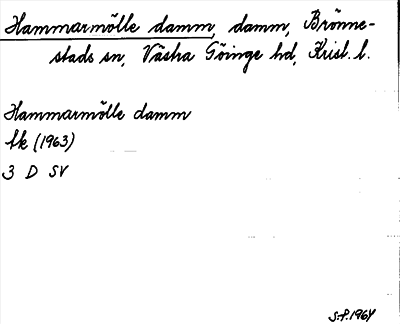 Hammarmölle damm, damm, Brönne-
stads sn, Västra Göinge hd, Krist. l.
Hammarmölle damm
Ek (1963)
3 D SV
S.P. 1964